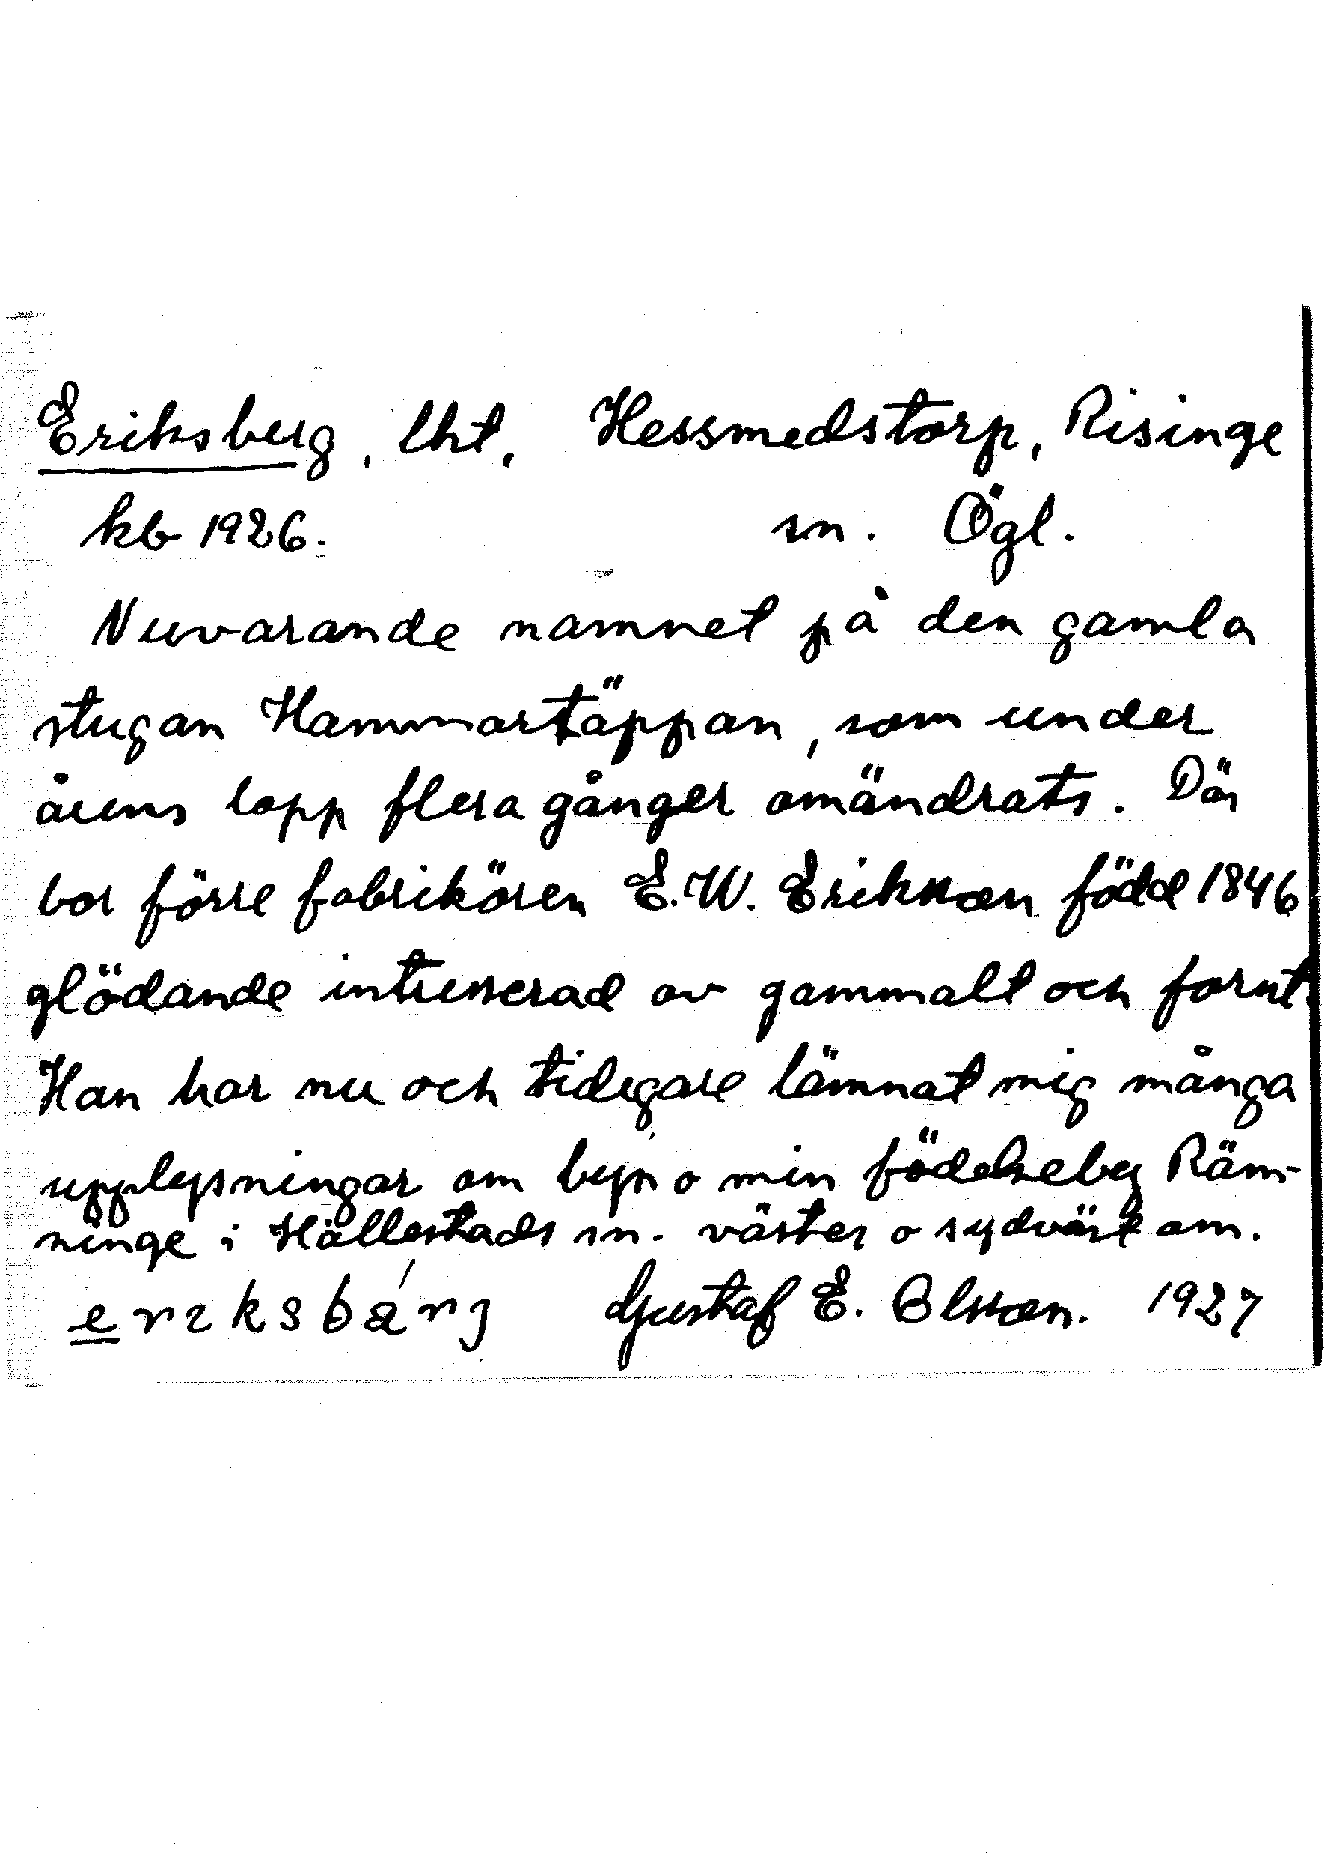 Eriksberg, lht, Hessmedstorp, Risinge
kb 1926. sn. Ögl.
Nuvarande namnet på den gamla
stugan Hammartäppan, som under
årens lopp flera gånger omändrats. Där
bor förre fabrikören E.W. Eriksson född 1846
glödande intresserad av gammalt och fornt.
Han har nu och tidigare lämnat mig många
upplysningar om byn o min födelseby Räm-
ninge i Hällestads sn. väster o sydväst om.
eriksbärj Gustaf E. Olsson. 1927